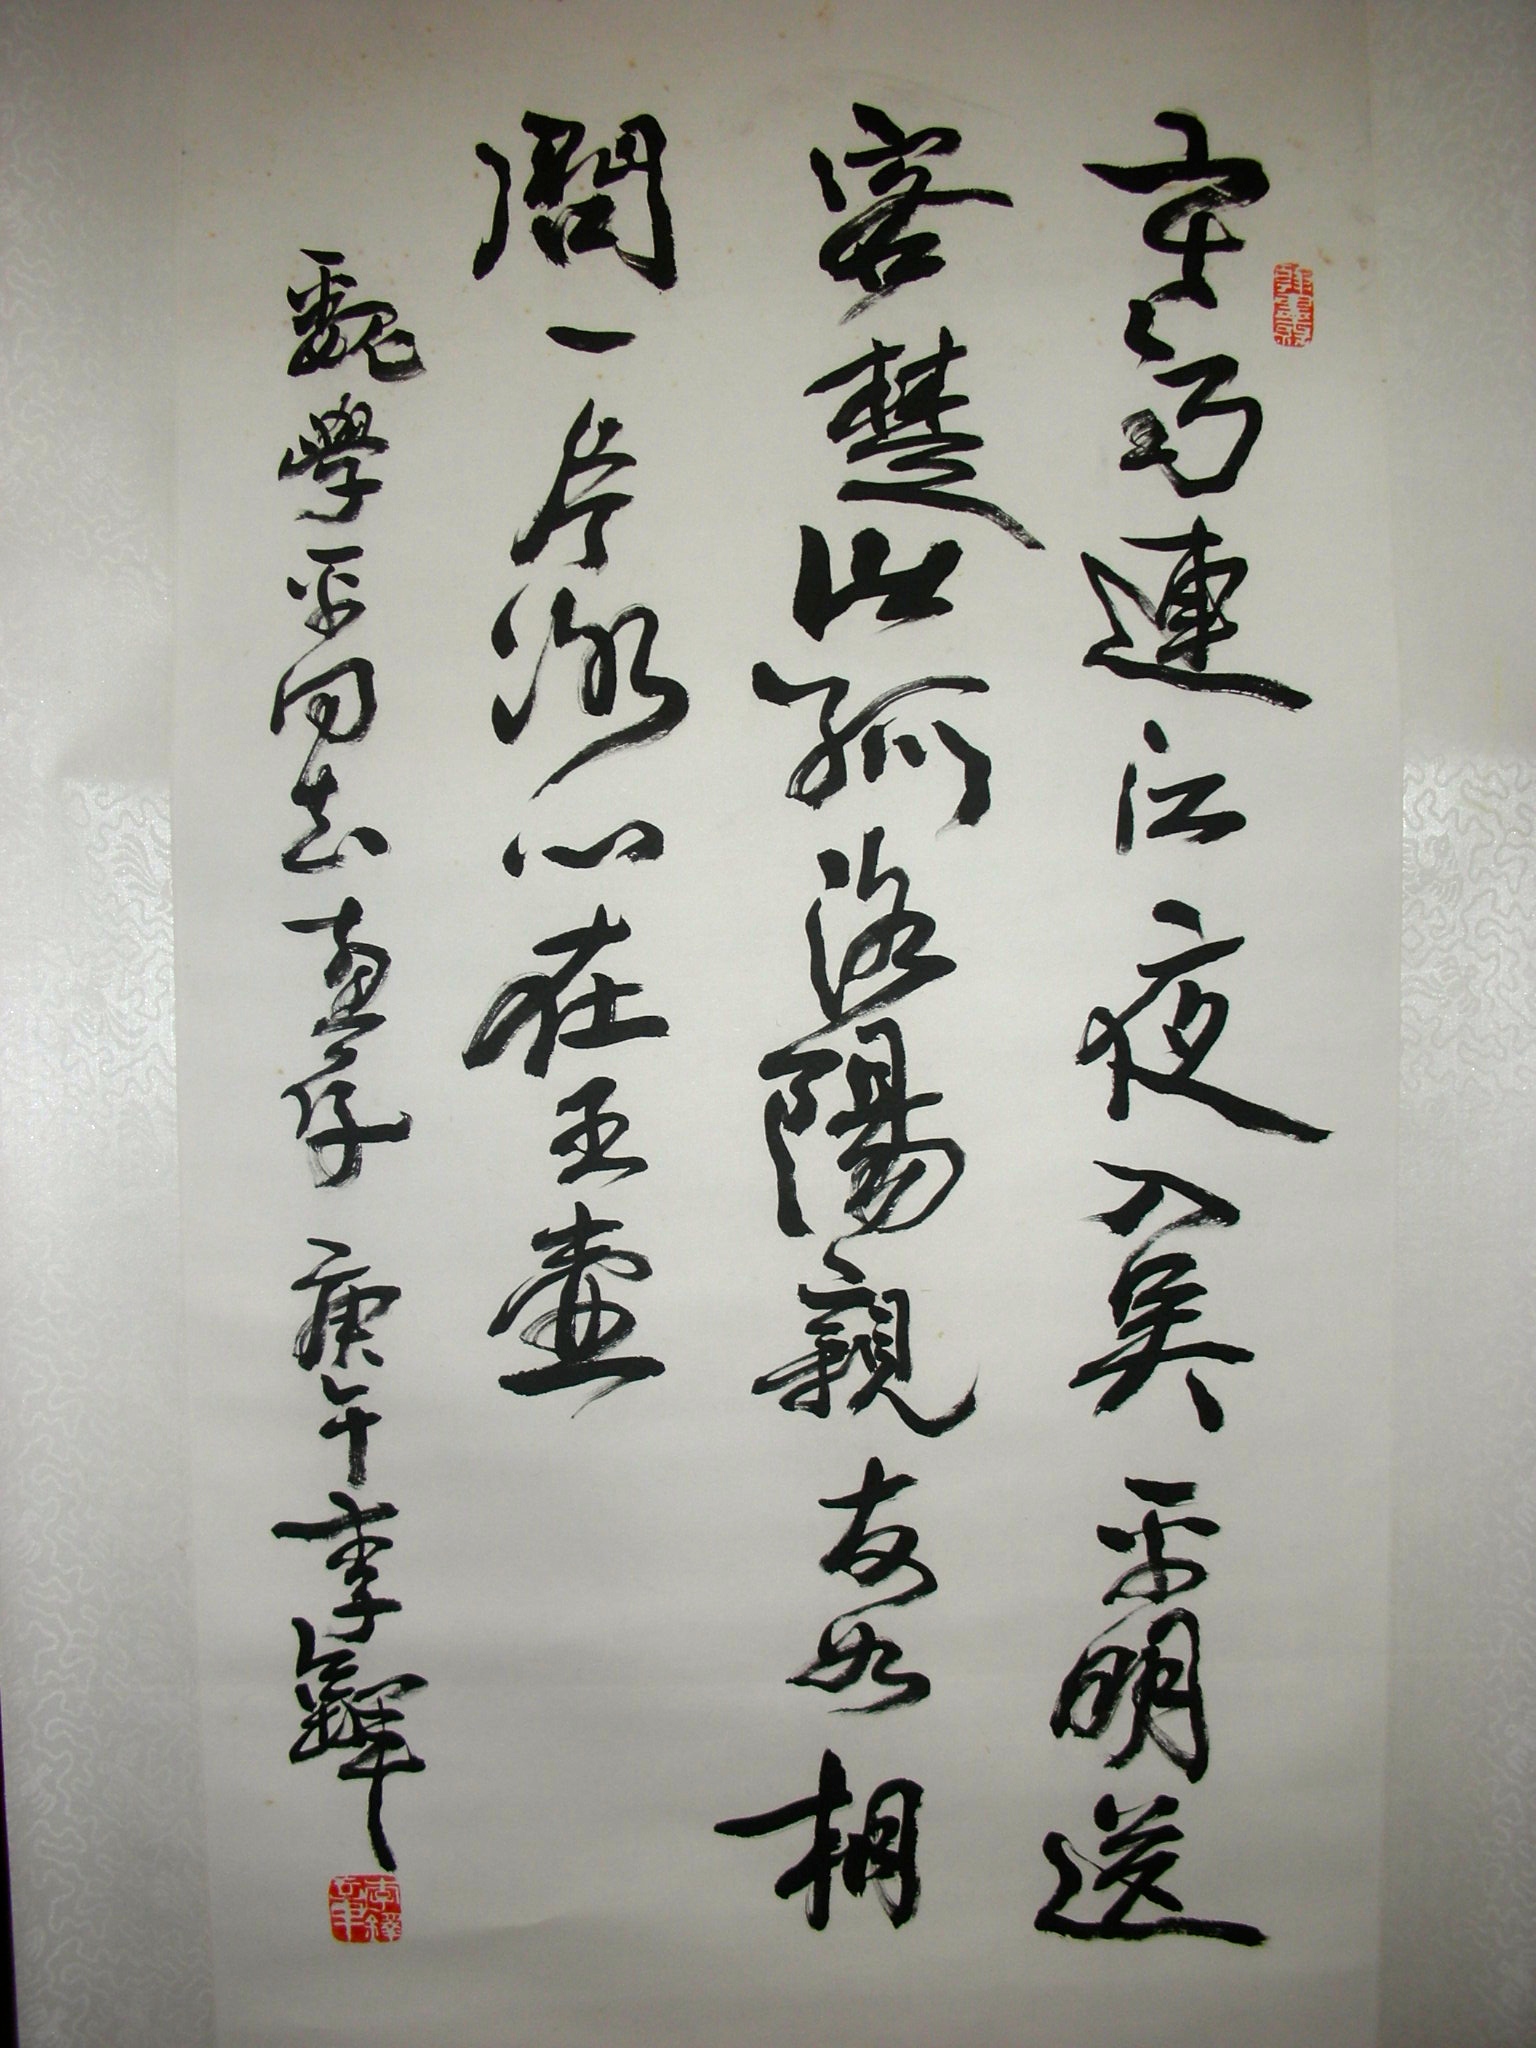 寒雨連江夜入吳平明送
客楚山孤洛陽親友如相
問一片冰心在玉壺
魏學平同志惠存 庚午李鐸